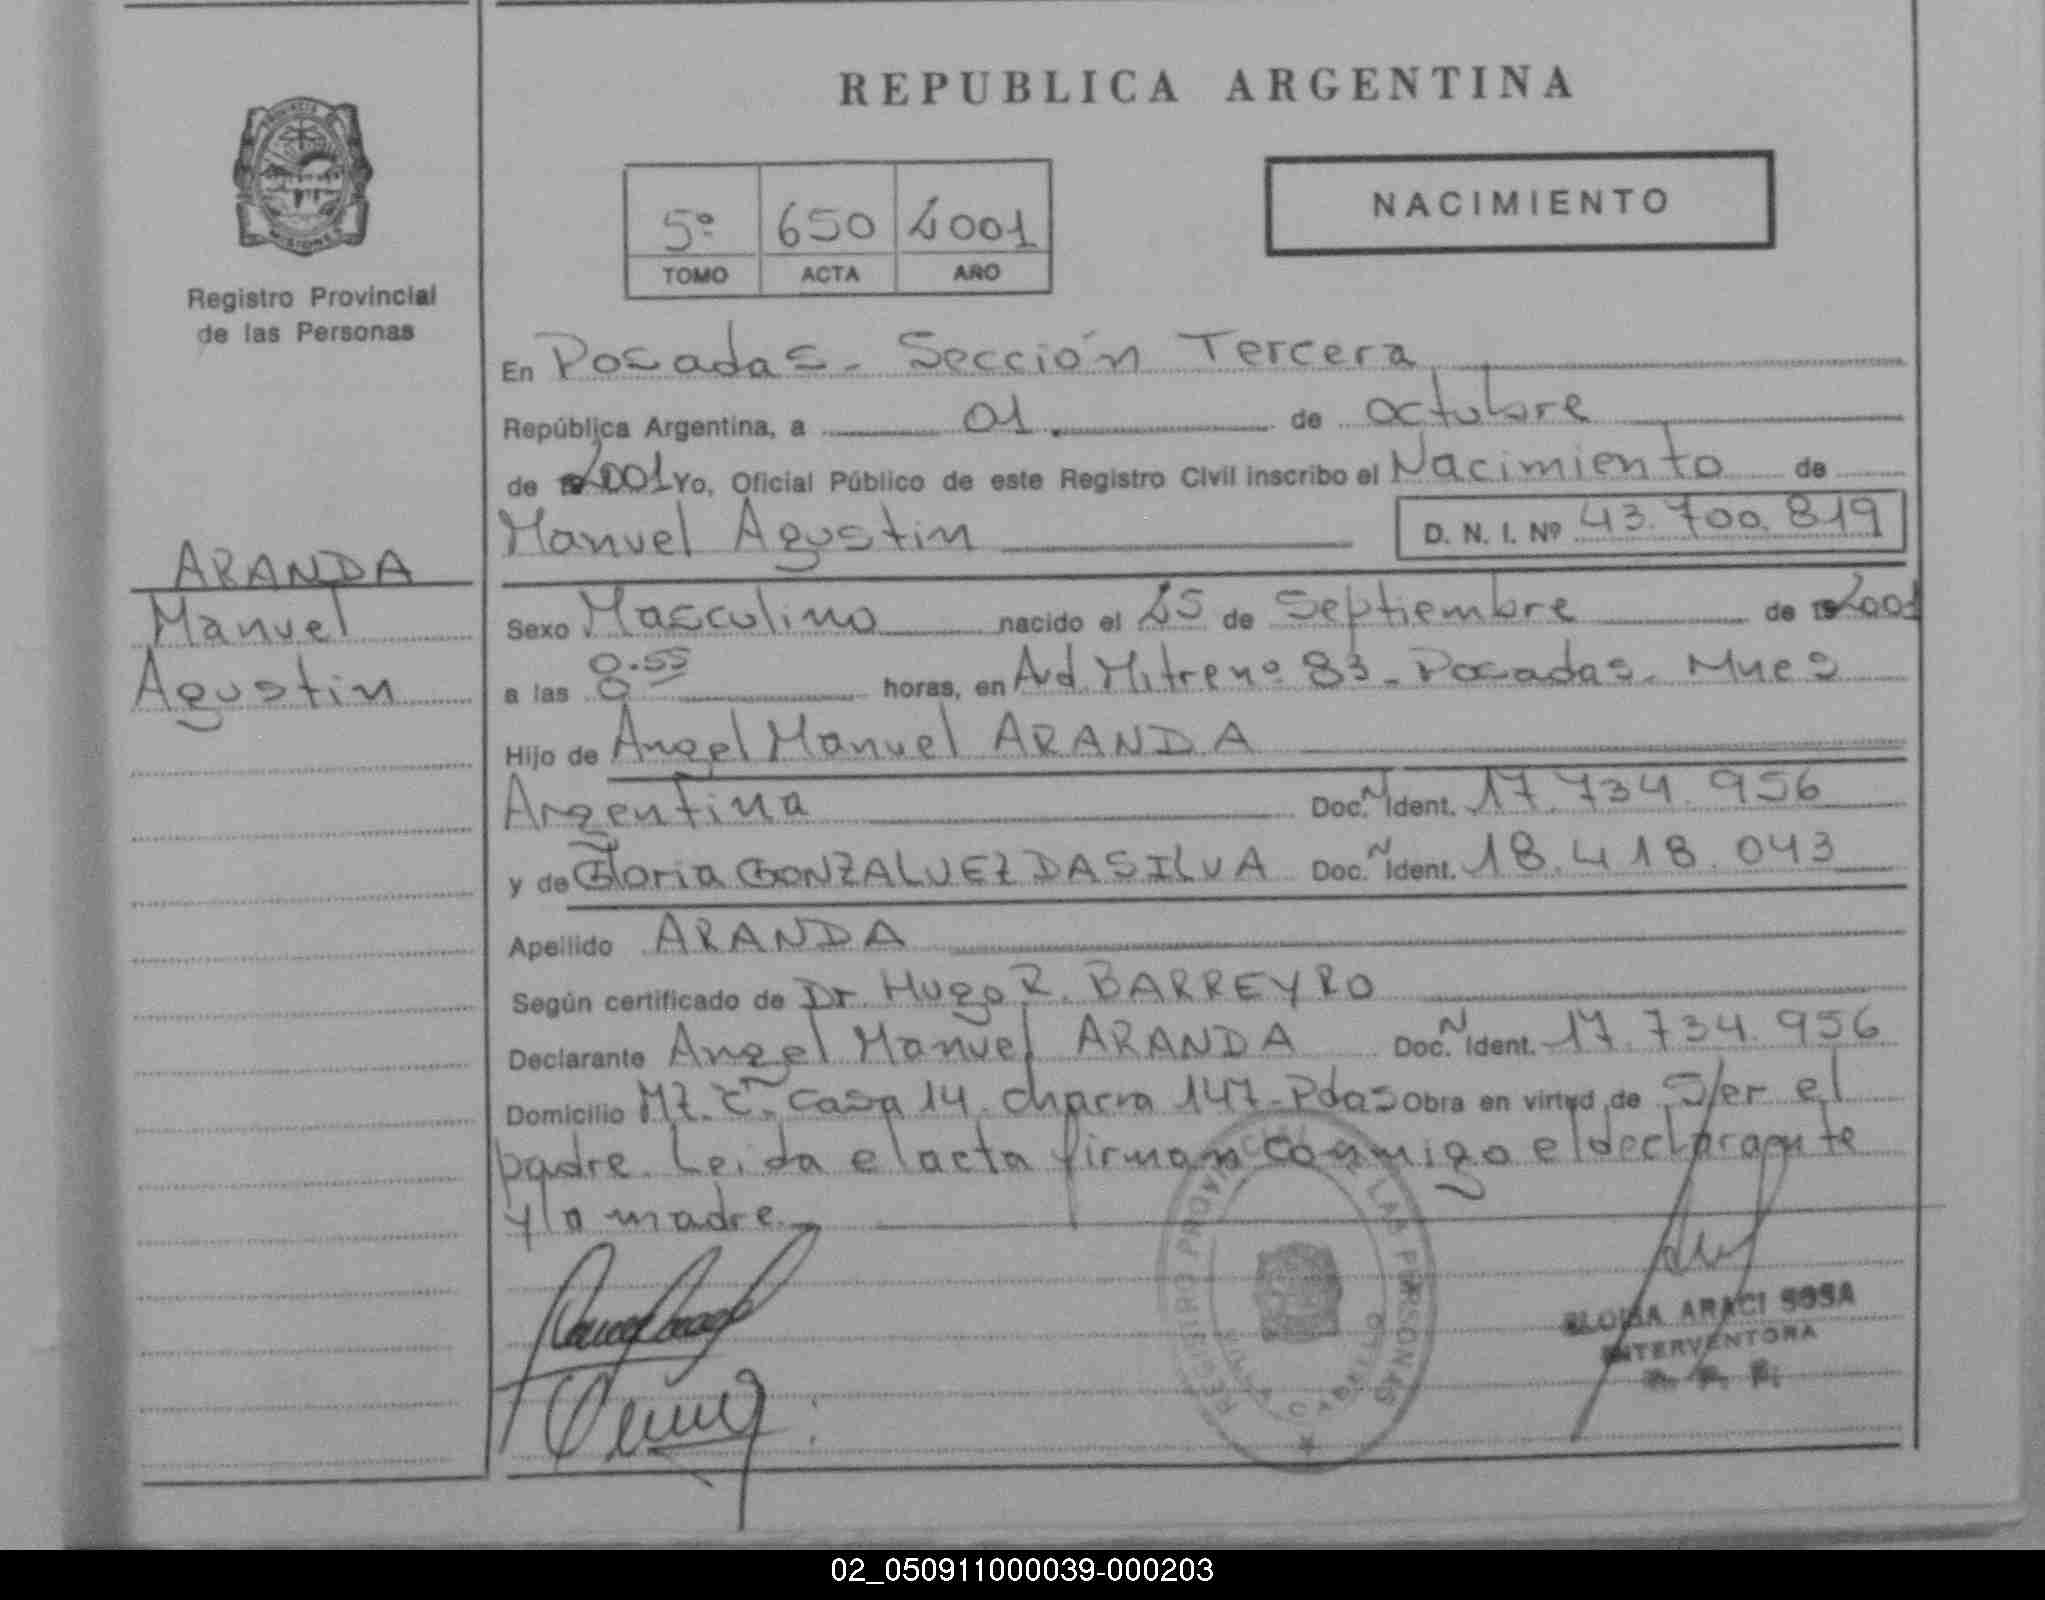 REPUBLICA ARGENTINA
NACIMIENTO
5º 650 2001
TOMO ACTA AÑO
PROVINCIA DE
MISIONES
Registro Provincial
de las Personas
ARANDA
Manuel
Agustin
En Posadas - Sección Tercera
República Argentina, a 01 de octubre
de 2001 Yo, Oficial Público de este Registro Civil inscribo el Nacimiento de
Manuel Agustin D. N. I. Nº 43.700.819
Sexo Masculino nacido el 25 de Septiembre de 2001
a las 0.55 horas, en Avd. Mitre nº 83 - Posadas - Mnes
Hijo de Angel Manuel ARANDA
Argentina Doc. Ident. 17.734.956
y de Gloria GONZALVEZ DASILVA Doc. Ident. 18.418.043
Apellido ARANDA
Según certificado de Dr. Hugo R. BARREYRO
Declarante Angel Manuel ARANDA Doc. Ident. 17.734.956
Domicilio Mz. C. Casa 14. chacra 147 - Pdas Obra en virtud de Ser el
padre. Leida el acta firman conmigo el declarante
y la madre.
REGISTRO PROVINCIAL DE LAS PERSONAS
ELOISA ARACI SOSA
INTERVENTORA
02_050911000039-000203